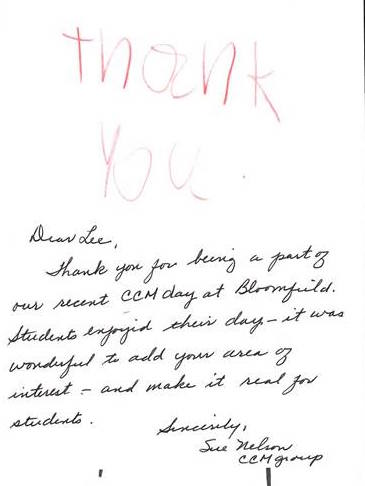 Thank
You.
Dear Lee,
Thank you for being a part of
our recent CCM day at Bloomfield.
Students enjoyed their day - it was
wonderful to add your area of
interest - and make it real for
students.
Sincerely,
Sue Nelson
CCM group